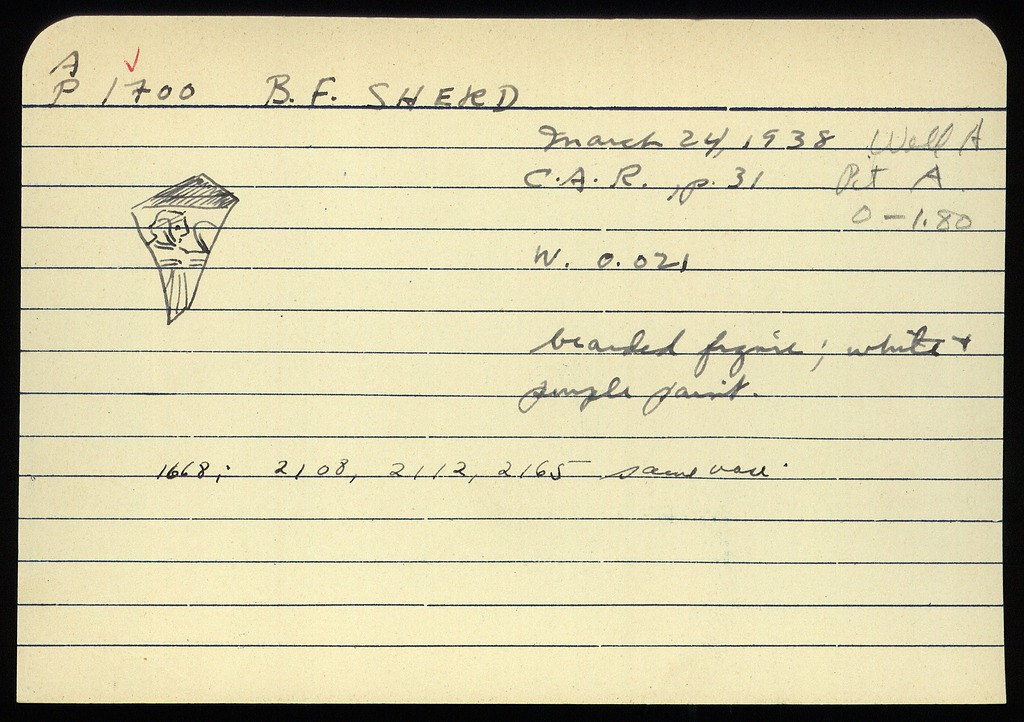 A
P 1700 B.F. SHERD
March 24, 1938 Well A
C.A.R., p. 31 Pit A
0 - 1.80
W. 0.021
bearded figure; white +
purple paint.
1668; 2108, 2112, 2165 same vase.